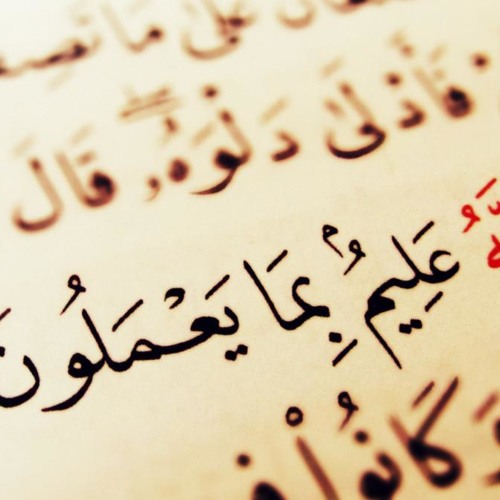 عَلَىٰ مَا
فَأَدْلَىٰ دَلْوَهُۥ قَالَ
عَلِيمُۢ بِمَا يَعْمَلُونَ
وَكَانُوا۟